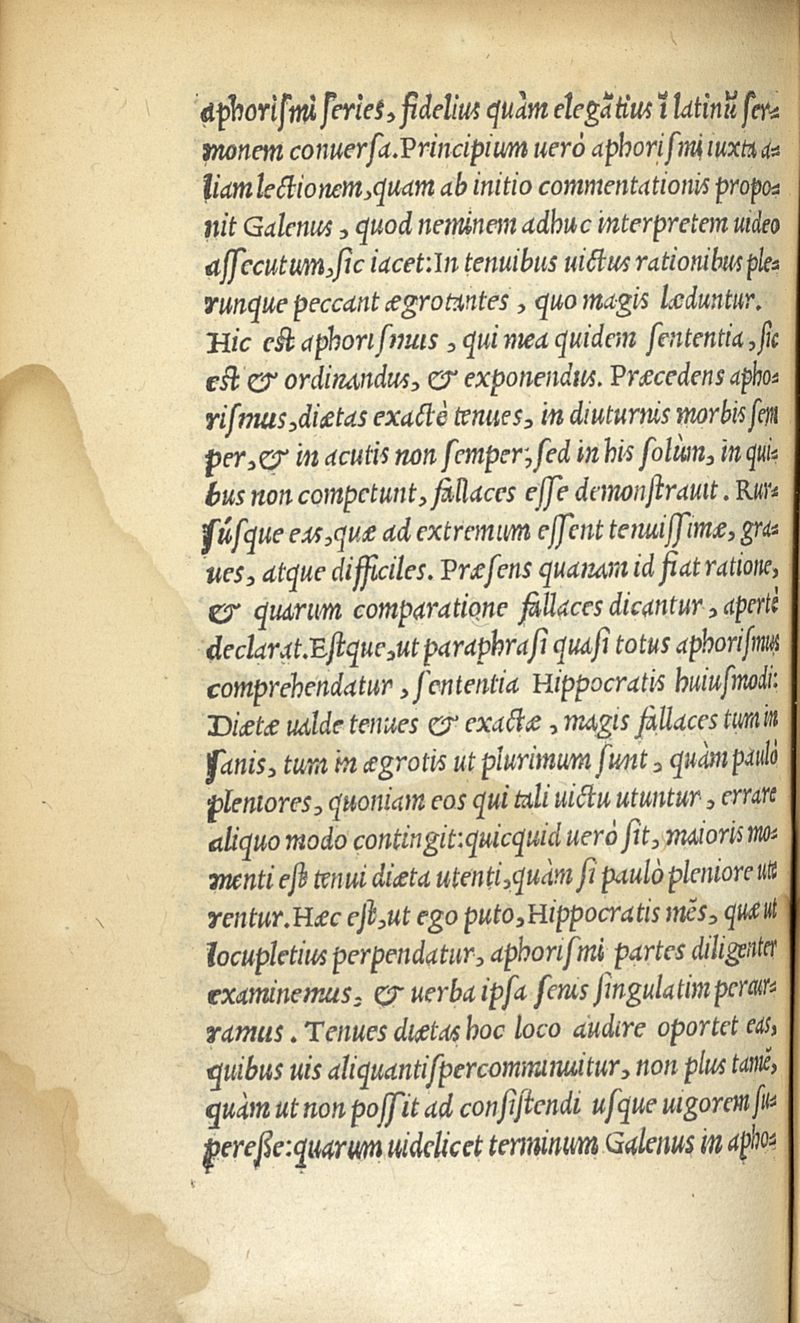 aphoriſmi ſeries, fidelius quàm elegãtius ĩ latinũ ſer-
monem conuerſa. Principium uerò aphoriſmi iuxta a-
liam lectionem, quam ab initio commentationis propo-
nit Galenus, quod neminem adhuc interpretem uideo
aſſecutum, ſic iacet: In tenuibus uictus rationibus ple-
runque peccant ægrotantes, quo magis læduntur.
Hic est aphoriſmus, qui mea quidem ſententia, ſic
est & ordinandus, & exponendus. Præcedens apho-
riſmus, diætas exactè tenues, in diuturnis morbis ſem
per, & in acutis non ſemper, ſed in his ſolùm, in qui-
bus non competunt, fallaces eſſe demonſtrauit. Rur-
ſúſque eas, quæ ad extremum eſſent tenuiſſimæ, gra-
ues, atque difficiles. Præſens quanam id fiat ratione,
& quarum comparatione fallaces dicantur, apertè
declarat. Eſtque, ut paraphraſi quaſi totus aphoriſmus
comprehendatur, ſententia Hippocratis huiuſmodi:
Diætæ ualde tenues & exactæ, magis fallaces tum in
ſanis, tum in ægrotis ut plurimum ſunt, quàm paulò
pleniores, quoniam eos qui tali uictu utuntur, errare
aliquo modo contingit: quicquid uerò ſit, maioris mo-
menti eſt tenui diæta utenti, quàm ſi paulò pleniore ute
rentur. Hæc eſt, ut ego puto, Hippocratis mẽs, quæ ut
locupletius perpendatur, aphoriſmi partes diligenter
examinemus, & uerba ipſa ſenis ſingulatim percur-
ramus. Tenues diætas hoc loco audire oportet eas,
quibus uis aliquantiſper comminuitur, non plus tamẽ,
quàm ut non poſſit ad conſiſtendi uſque uigorem ſu-
pereße: quarum uidelicet terminum Galenus in apho-